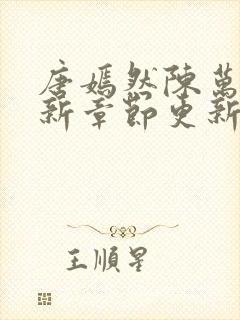 唐嫣然陳萬
新章節更新
王順星